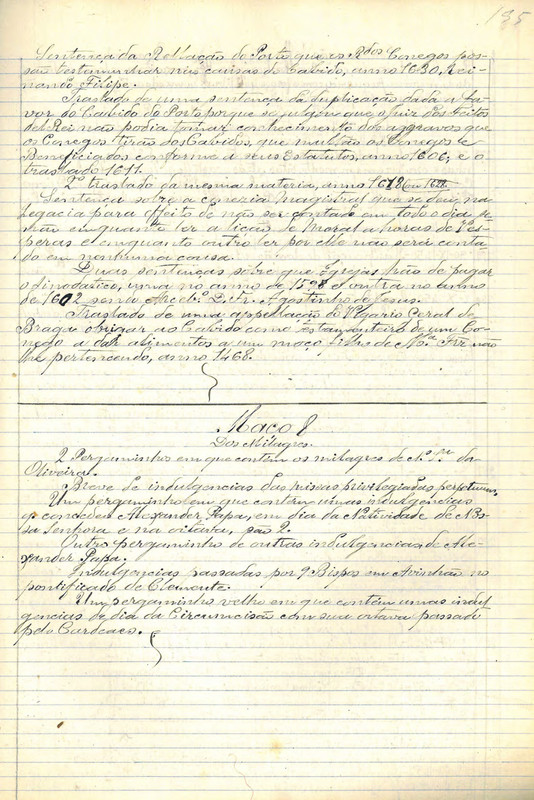 185
Sentença da Rellação do Porto que os R.dos Conegos pos-
são testamunhar nas causas do Cabido, anno 1630, Rei-
nando Filipe.
Traslado de uma sentença da Suplicação dada a fa-
vor do Cabido do Porto porque se julgou que o juiz dos feitos
del Rei não podia tomar conhecimento dos aggravos que
os Conegos tirão dos Cabidos, que multão os Conegos e
Beneficiados conforme a seus Estatutos, anno 1606, e o
traslado 1611.
2º traslado da mesma materia, anno 1618 ou 1628
Sentença sobre a conezia magistral que se deu na
Legacia para effeito de não ser contado em todo o dia, se-
não em quanto ler a lição de Moral a horas de Ves-
peras e emquanto outro ler por elle não será conta-
do em nenhuma causa.
Duas sentenças sobre que Egrejas hão de pagar
o sinodatico, uma no anno de 1598 e outra no anno
de 1602 sendo Arceb.º D. Fr. Agostinho de Jesus.
Traslado de uma appellação do Vigario Geral de
Braga obrigar ao Cabido como testamenteiro de um Co-
nego a dar alimentos a um moço filho de M.ª Frz não
lhe pertencendo, anno 1468.
Maço 8
Dos Milagres.
2 Pergaminhos em que contem os milagres de N.ª Sr.ª da
Oliveira.
Breve de indulgencias das missas privilegiadas perpetuum.
Um pergaminho em que contem umas indulgencias
q. concedeu Alexander, Papa, em dia da Natividade de Nos-
sa Senhora e na oitava, são 2.
Outro pergaminho de outras indulgencias, de Ale-
xander Papa.
Indulgencias passadas por 9 Bispos em Avinhão no
pontificado de Clemente.
Um pergaminho velho em que contém umas indul-
gencias do dia da Circumcisão com sua oitava passado
pelo Cardeaes.